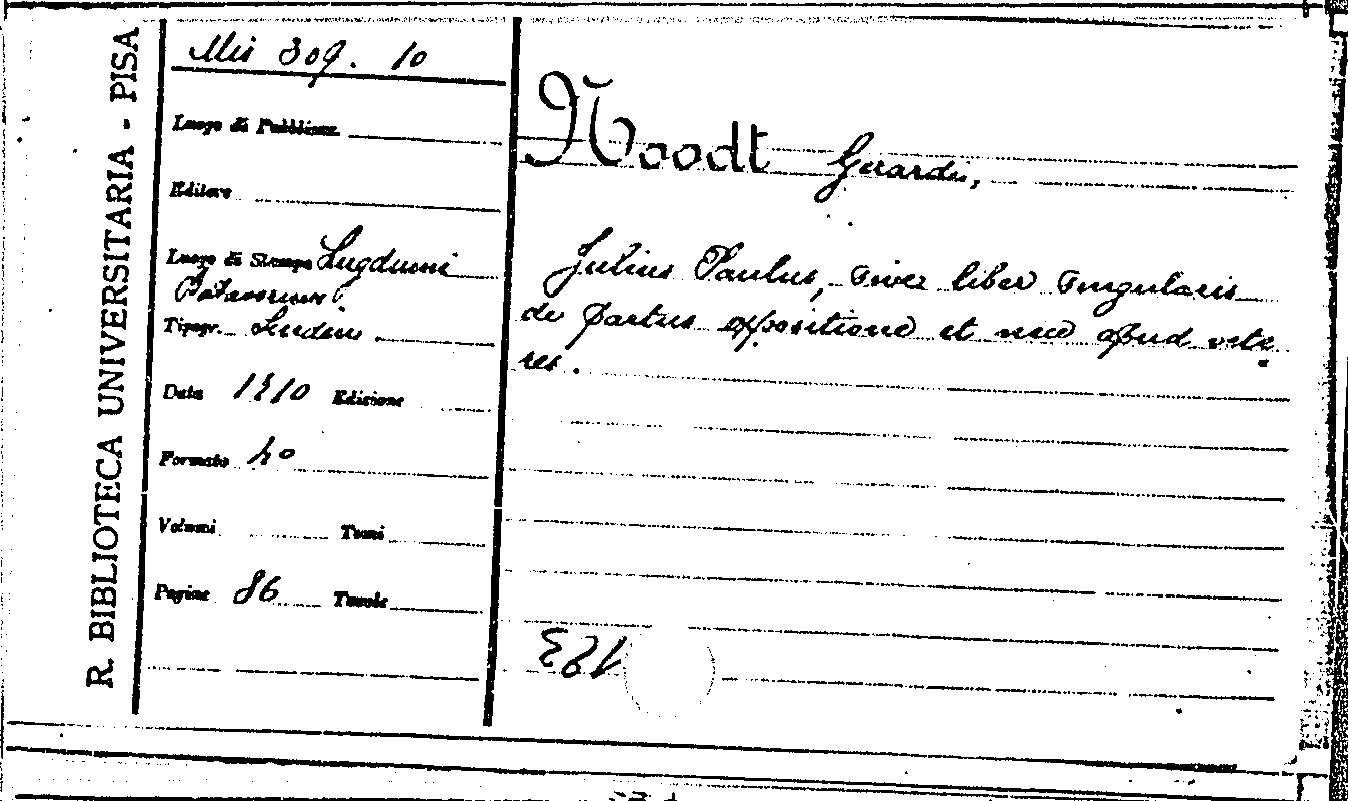 R. BIBLIOTECA UNIVERSITARIA - PISA
Mis 309. 10
Luogo di Pubblicaz.
Editore
Luogo di Stampa Lugduni
Batavorum
Tipogr.
Data 1710 Edizione
Formato 4º
Volumi Tomi
Pagine 86 Tavole
Noodt Gerardi,
Julius Paulus, sive liber singularis
de partus expositione et nece apud vete
res.